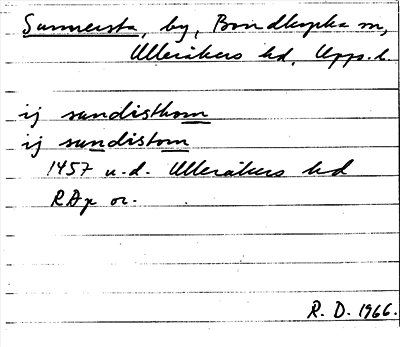 Sunnersta, by, Bondkyrka sn,
Ulleråkers hd, Upps. l.
ij sundisthom
ij sundistom
1457 u.d. Ulleråkers hd
RAp or.
R. D. 1966.